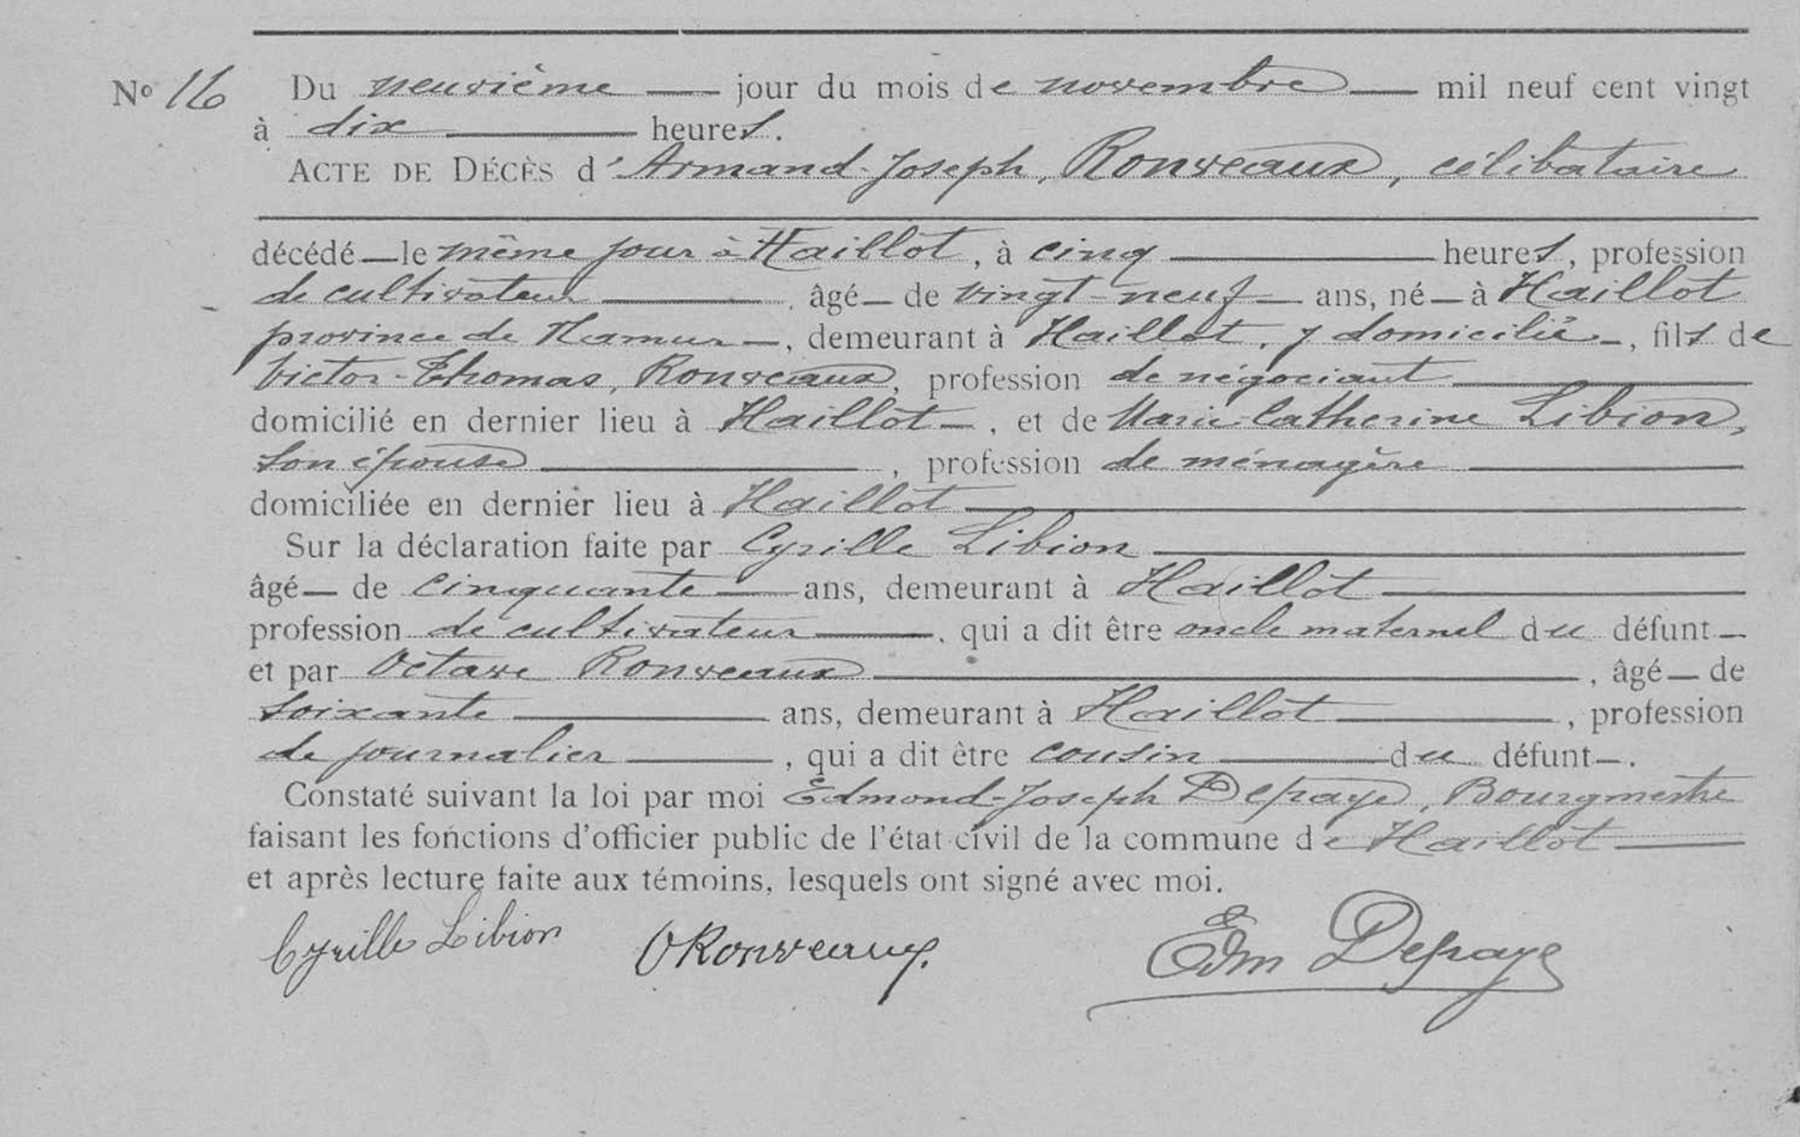 No 16 Du neuvième — jour du mois de novembre — mil neuf cent vingt
à dix — heures.
ACTE DE DÉCÈS d'Armand-Joseph, Ronveaux, célibataire
décédé — le même jour à Haillot, à cinq — heures, profession
de cultivateur — âgé — de vingt-neuf — ans, né — à Haillot
province de Namur —, demeurant à Haillot, y domicilié —, fils de
Victor-Thomas, Ronveaux, profession de négociant —
domicilié en dernier lieu à Haillot —, et de Marie-Catherine Libion,
son épouse —, profession de ménagère —
domiciliée en dernier lieu à Haillot —
Sur la déclaration faite par Cyrille Libion —
âgé — de cinquante — ans, demeurant à Haillot —
profession de cultivateur —, qui a dit être oncle maternel du défunt —
et par Octave Ronveaux —, âgé — de
soixante — ans, demeurant à Haillot —, profession
de journalier —, qui a dit être cousin — du défunt —.
Constaté suivant la loi par moi Edmond-Joseph Depaye, Bourgmestre
faisant les fonctions d'officier public de l'état civil de la commune de Haillot —
et après lecture faite aux témoins, lesquels ont signé avec moi.
Cyrille Libion ORonveaux. Edm Depaye